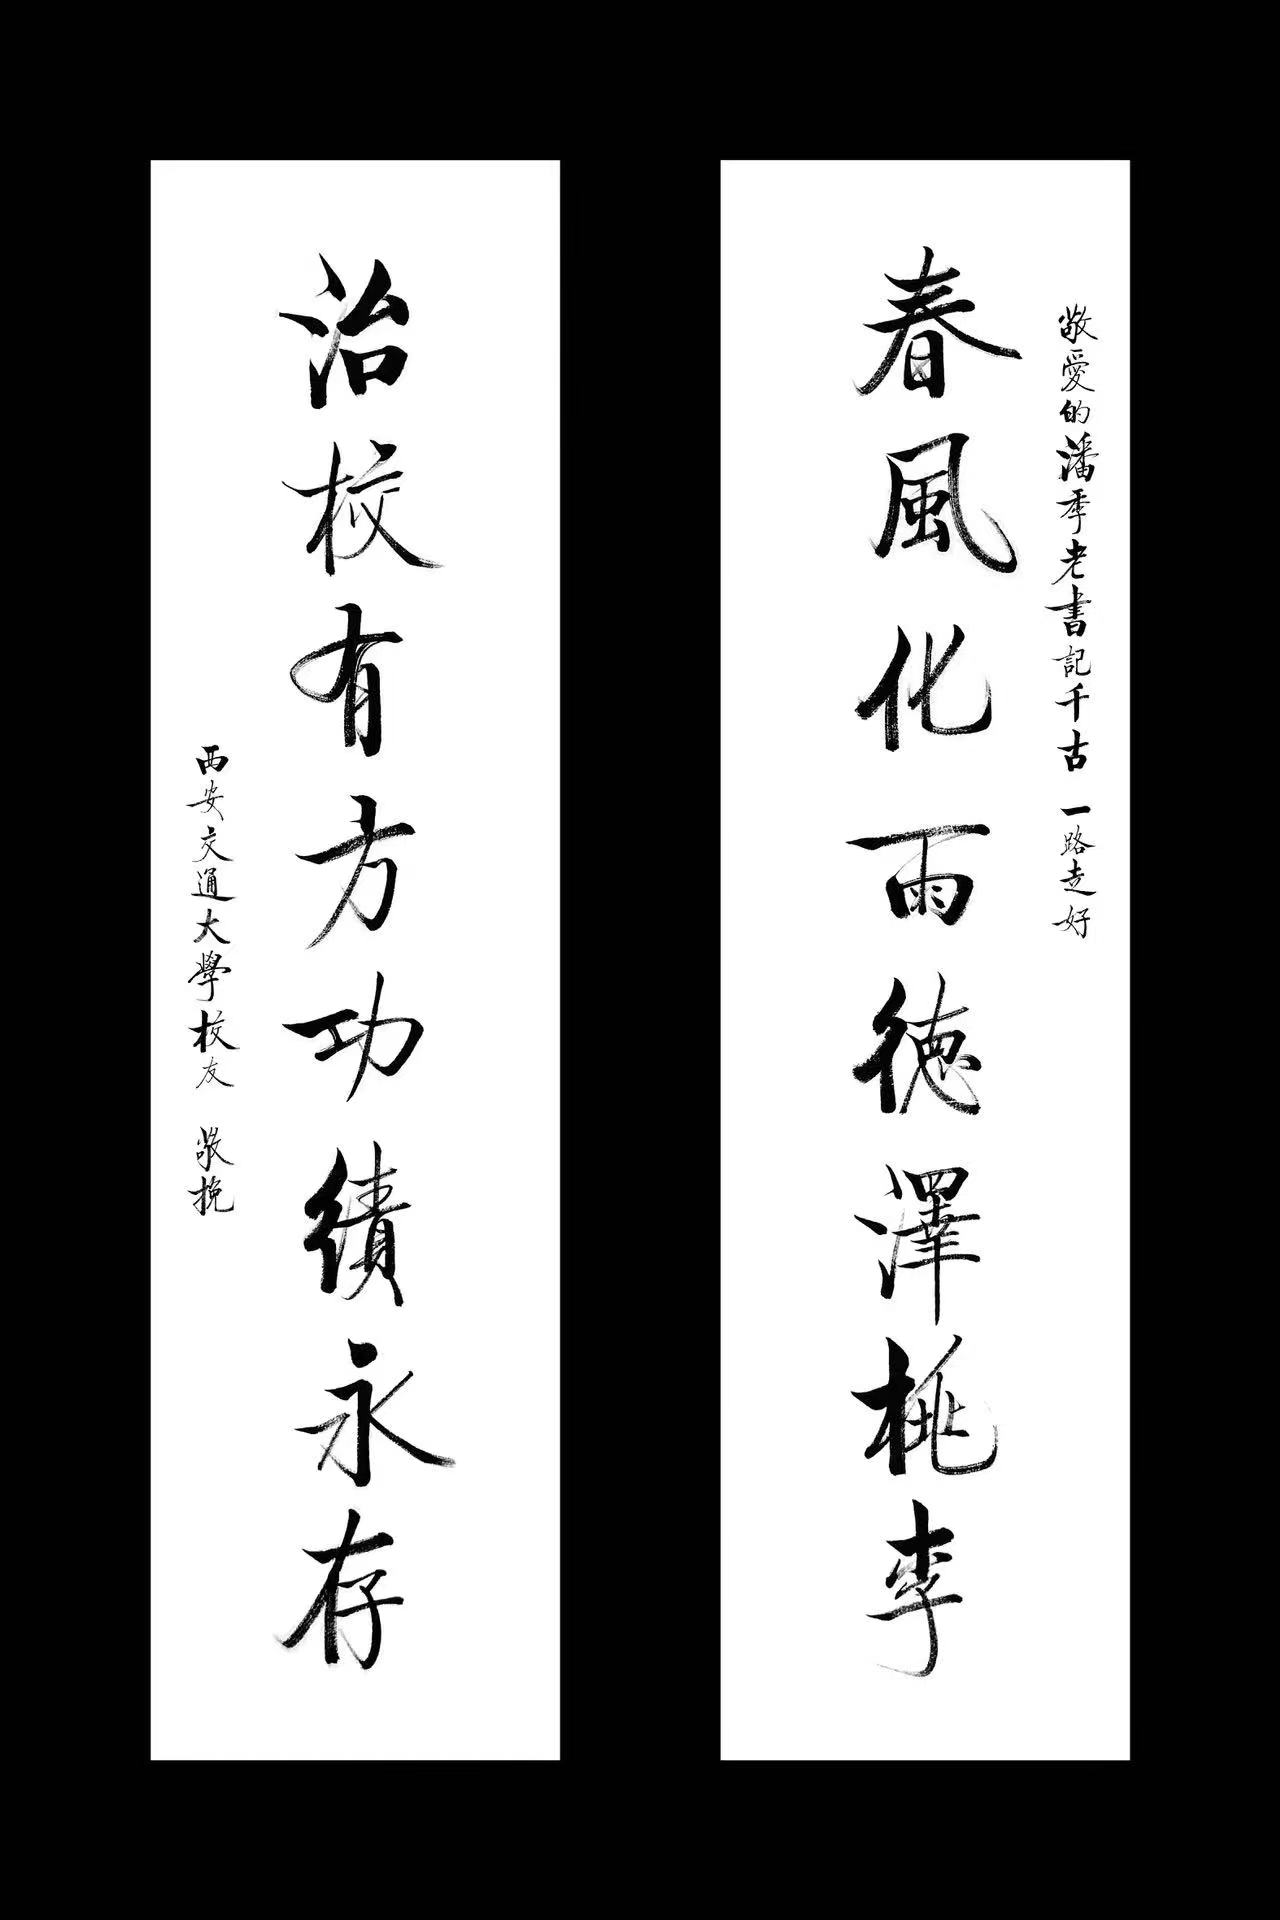 敬愛的潘季老書記千古 一路走好
春風化雨德澤桃李
治校有方功績永存
西安交通大學校友 敬挽